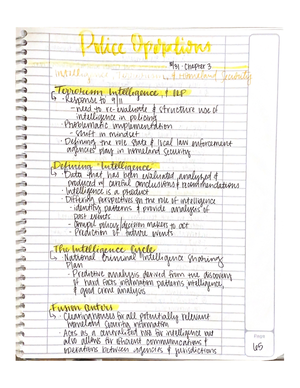 Police Operations
Chapter 3
Intelligence, Terrorism & Homeland Security
Terrorism, Intelligence, & ILP
↳ Response to 9/11
- need to re-evaluate & structure use of
intelligence in policing
· Problematic implementation
- shift in mindset
· Defining the role state & local law enforcement
agencies play in homeland security
Defining "Intelligence"
↳ Data that has been evaluated, analyzed &
produced w/ careful conclusions & recommendations
· Intelligence is a product
· Differing perspectives on the role of intelligence
- identify patterns & provide analysis of
past events
- compel policy/decision makers to act
- Prediction of future events
The Intelligence Cycle
↳ National Criminal Intelligence Sharing
Plan
- Predictive analysis derived from the discovery
of hard facts, information patterns, intelligence,
& good crime analysis
Fusion Centers
↳ Clearinghouses for all potentially relevant
homeland security information
· Acts as a centralized hub for intelligence but
also allows for efficient communications &
operations between agencies & jurisdictions
Page
65